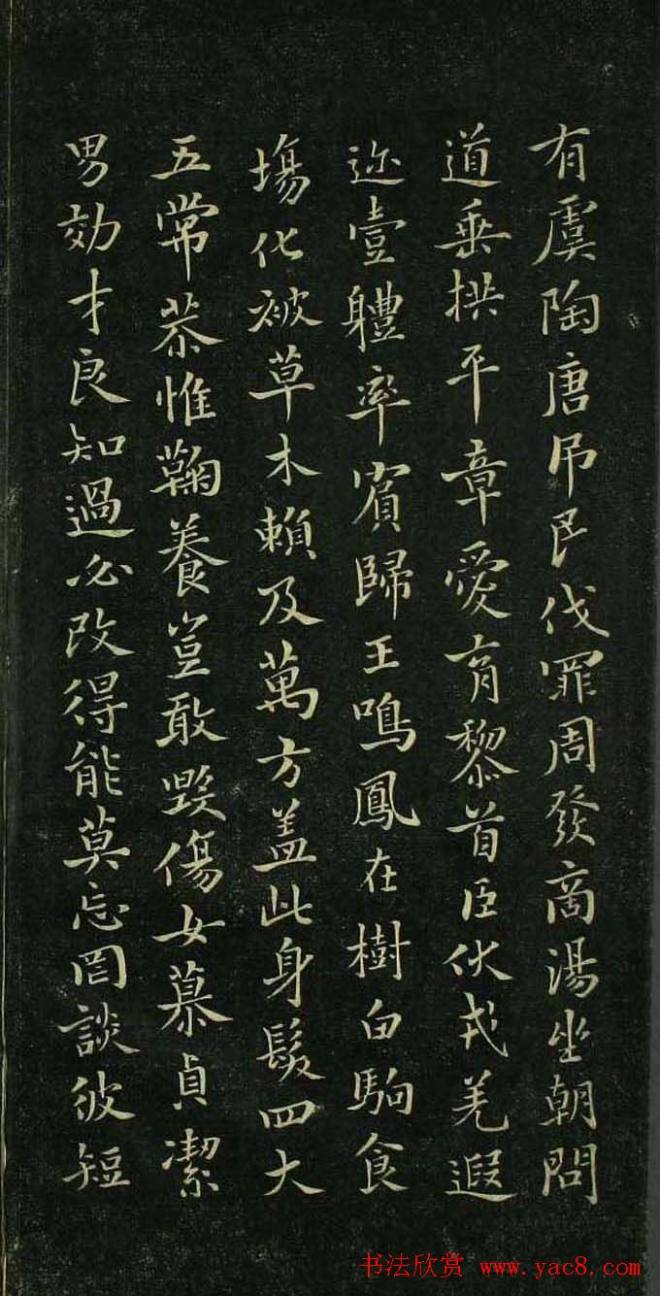 有虞陶唐弔民伐罪周發商湯坐朝問
道垂拱平章愛育黎首臣伏戎羌遐
迩壹軆率賓歸王鳴鳳在樹白駒食
場化被草木賴及萬方盖此身髮四大
五常恭惟鞠養豈敢毀傷女慕貞潔
男効才良知過必改得能莫忘罔談彼短
书法欣赏 www.yac8.com